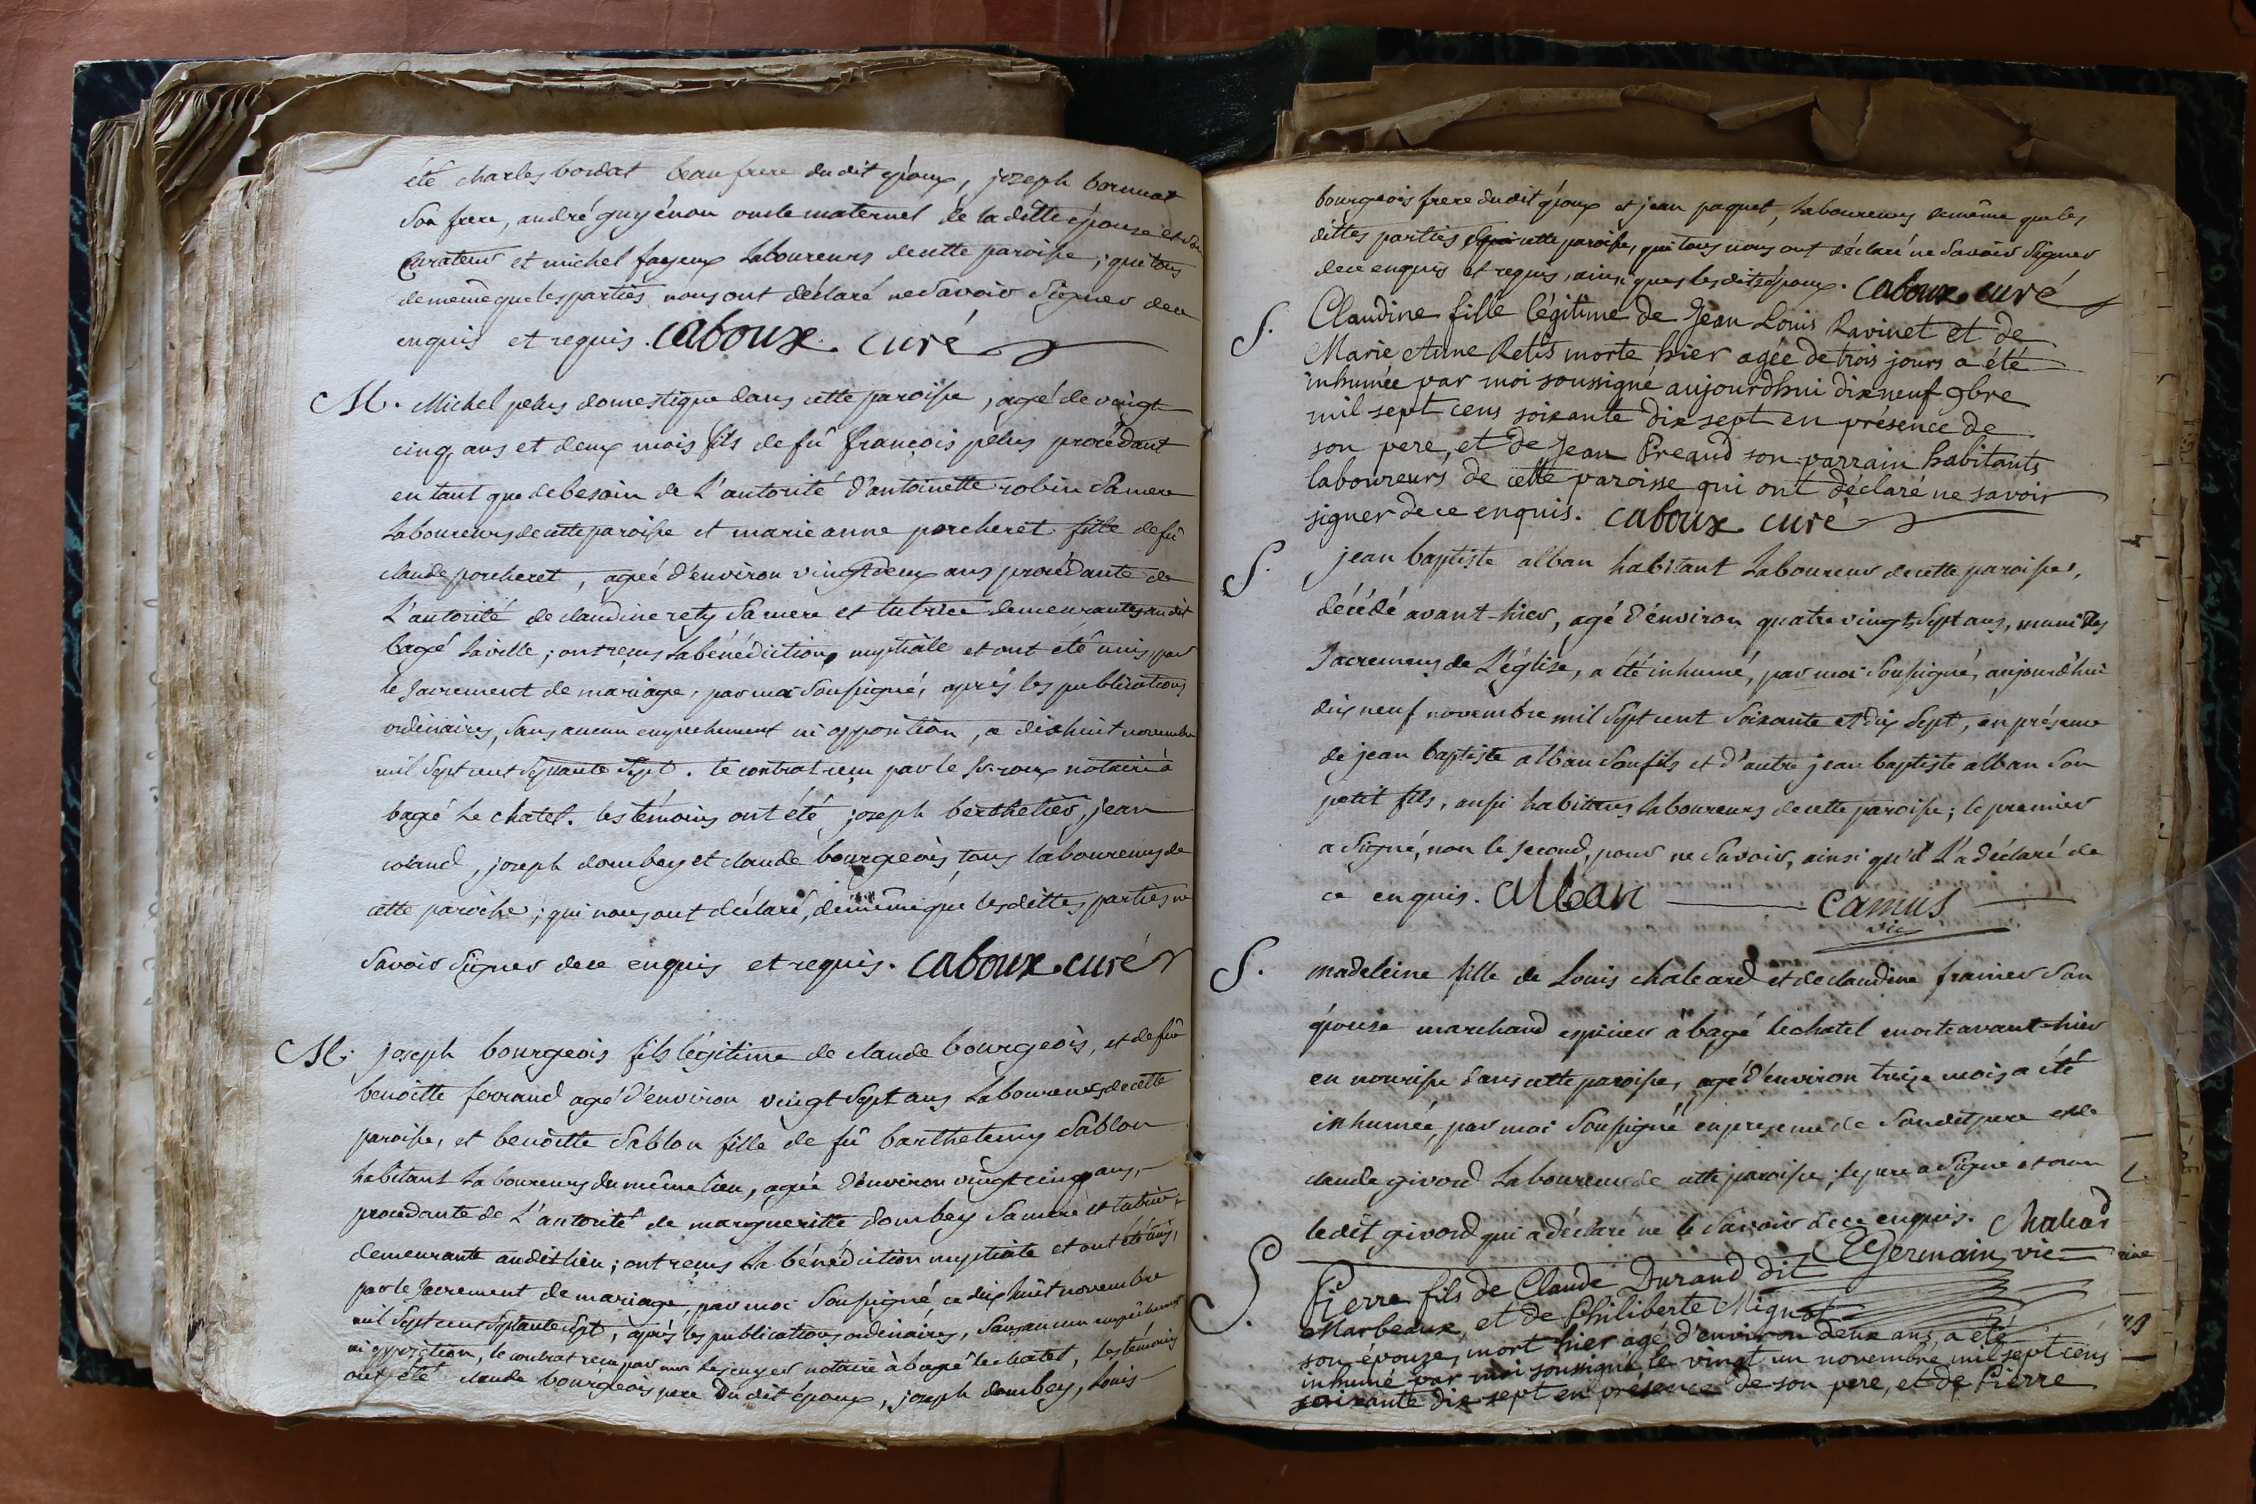 été charles bordat beau frere du dit époux, joseph bornuat
son frere, andré guyénon oncle maternel de la ditte épouse et son
curateur et michel fayeux laboureurs de cette paroisse; qui tous
de même que les parties nous ont déclaré ne savoir signer de ce
enquis et requis. caboux curé
M. Michel pelus domestique dans cette paroisse, agé de vingt
cinq ans et deux mois fils de fû françois pelus procédant
en tant que de besoin de l'autorité d'antoinette robin sa mere
laboureurs de cette paroisse et marie anne porcheret fille de fû
claude porcheret, agée d'environ vingt deux ans procédante de
l'autorité de claudine rety sa mere et tutrice demeurantes au dit
bagé la ville; ont reçus la bénédiction nuptiale et ont été unis par
le sacrement de mariage, par moi soussigné, après les publications
ordinaires, sans aucun empechement ni opposition, ce dixhuit novembre
mil sept cent septante sept. le contrat reçu par le sr. roux notaire à
bagé le chatel. les témoins ont été, joseph berthelier, jean
coland, joseph dombey et claude bourgeois, tous laboureurs de
cette paroisse; qui nous ont déclaré, de même que les dittes parties ne
savoir signer de ce enquis et requis. caboux curé
M. joseph bourgeois fils légitime de claude bourgeois, et de fûe
benoitte ferrand agé d'environ vingt sept ans laboureurs de cette
paroisse, et benoitte sablon fille de fû barthelemy sablon
habitant laboureurs du même lieu, agée d'environ vingt cinq ans,
procédante de l'autorité de margueritte dombey sa mere et tutrice,
demeurante au dit lieu; ont reçus la bénédiction nuptiale et ont été unis,
par le sacrement de mariage, par moi soussigné, ce dix huit novembre
mil sept cent septante sept, après les publications ordinaires, sans aucun empêchement
ni opposition, le contrat reçu par notaire à bagé le chatel, les témoins
ont été claude bourgeois pere du dit époux, joseph dombey, louis
bourgeois frere du dit époux et jean paquet, laboureurs de même que les
dittes parties cette paroisse, qui tous nous ont déclaré ne savoir signer
de ce enquis et requis, ainsi que les dits époux. caboux curé
S. Claudine fille légitime de Jean Louis Ravinet et de
Marie Anne Retis morte hier agée de trois jours a été
inhumée par moi soussigné aujourdhui dix neuf 9bre
mil sept cens soixante dix sept en présence de
son pere, et de Jean Preaud son parrain habitants
laboureurs de cette paroisse qui ont déclaré ne savoir
signer de ce enquis. caboux curé
S. jean baptiste alban habitant laboureur de cette paroisse,
décédé avant-hier, agé d'environ quatre vingt sept ans, muni des
sacremens de l'église, a été inhumé, par moi soussigné, aujourd'hui
dix neuf novembre mil sept cent soixante et dix sept, en présence
de jean baptiste alban son fils et d'autre jean baptiste alban son
petit fils, aussi habitans laboureurs de cette paroisse; le premier
a signé, non le second, pour ne savoir, ainsi qu'il l'a déclaré de
ce enquis. Alban camus
vic
S. madeleine fille de louis chaleard et de claudine frainier son
épouse marchand epicier à bagé le chatel morte avant-hier
en nourisse dans cette paroisse, agé d'environ treize mois a été
inhumée, par moi soussigné en présence de son dit pere et de
claude givord laboureur de cette paroisse; le pere a signé et non
le dit givord qui a déclaré ne le savoir de ce enquis. Chaleard
Germain vic
S. Pierre fils de Claude Durand dit
Marbeaux, et de Philiberte Mignot
son épouse, mort hier agé d'environ deux ans, a été
inhumé par moi soussigné le vingt un novembre mil sept cens
soixante dix sept en présence de son pere, et de Pierre